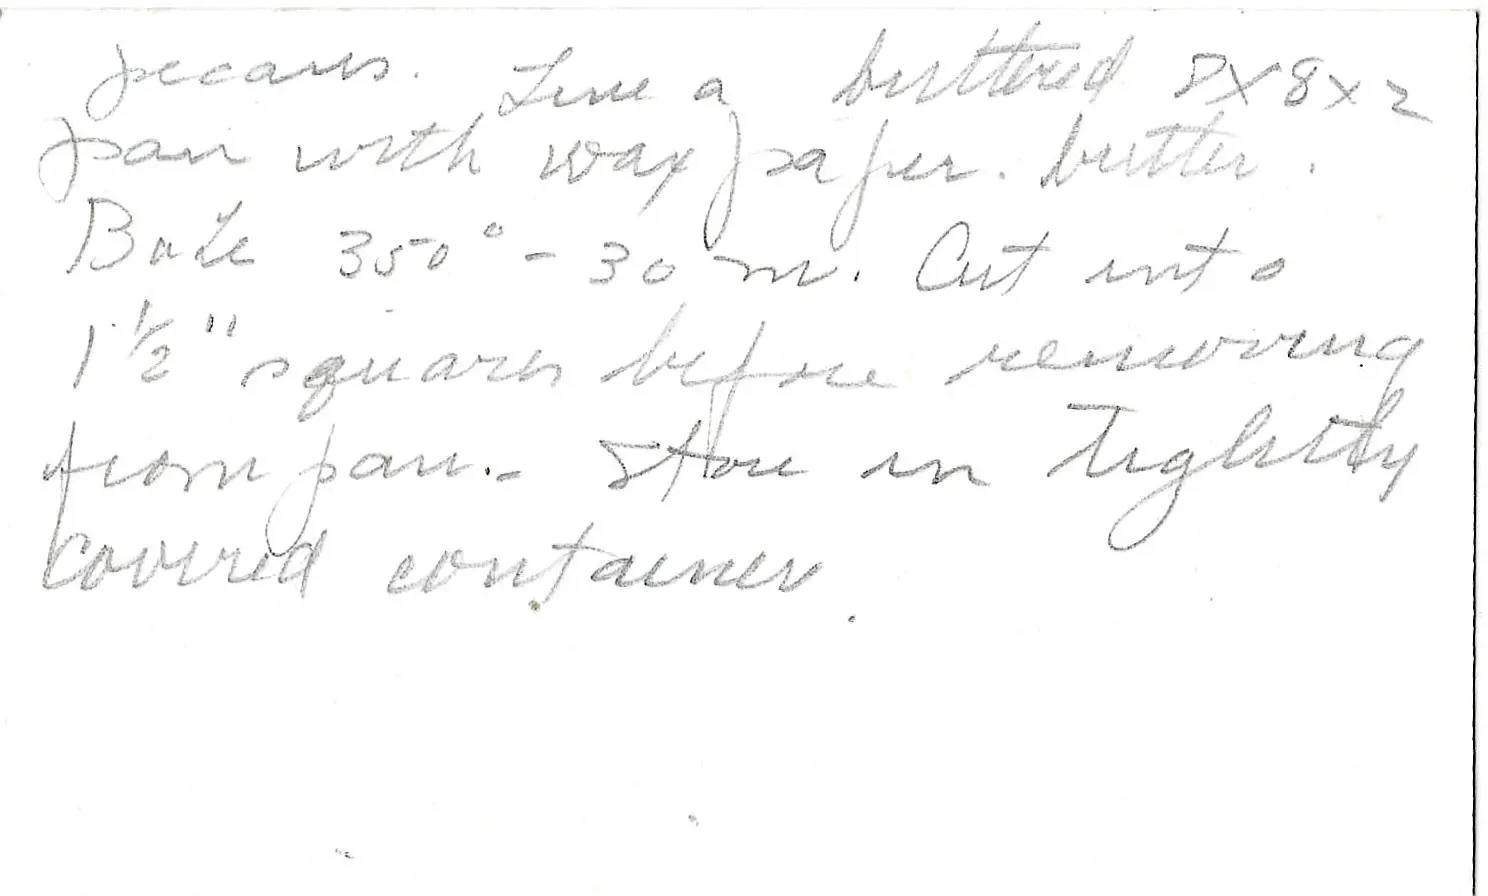 pecans. Line a buttered 8x8x2
pan with wax paper. butter.
Bake 350° - 30 m. Cut into
1 1/2" squares before removing
from pan. - Store in tightly
covered container.